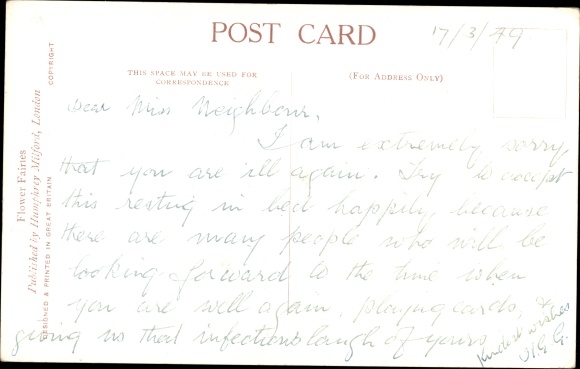 POST CARD
17/3/79
THIS SPACE MAY BE USED FOR
CORRESPONDENCE
(FOR ADDRESS ONLY)
Dear Miss Neighbour,
I am extremely sorry
that you are ill again. Try to accept
this resting in bed happily because
there are many people who will be
looking forward to the time when
you are well again, playing cards, &
giving us that infectious laugh of yours
Kindest wishes
Flower Fairies
Published by Humphrey Milford, London
DESIGNED & PRINTED IN GREAT BRITAIN
COPYRIGHT